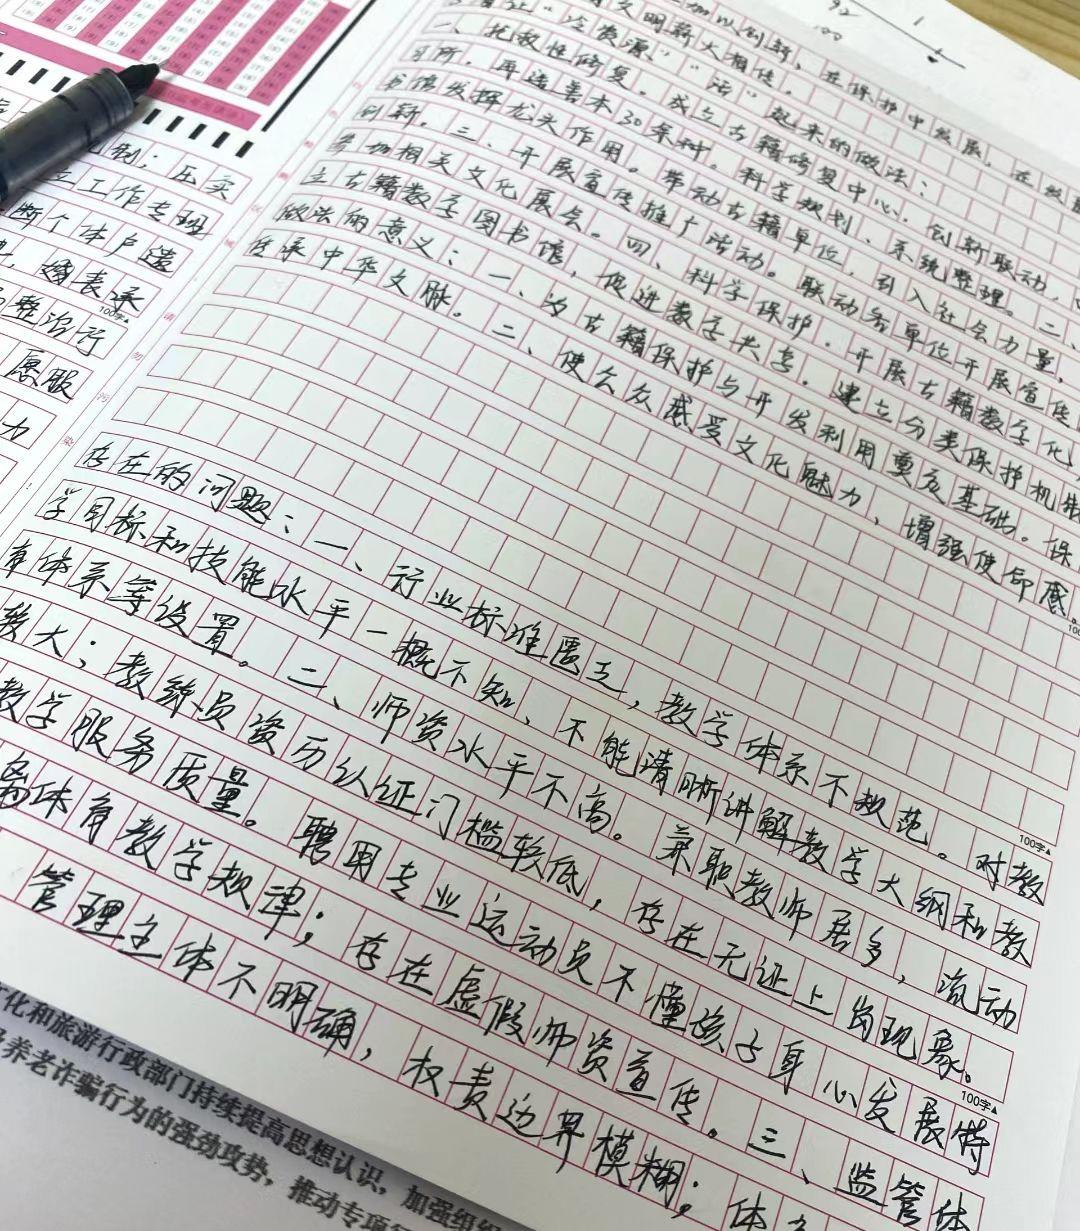 92
1
100
制；压实
工作专班
断个体户遗
，婚丧承
整治行
100字▲
愿服
力
加以创新，在保护中发展，在
文明薪火相传。
让“冷资源”“活”起来的做法：
一、抢救性修复。成立古籍修复中心，创新联动，
习所，再造善本30余种。科学规划、系统整理。二、
书馆发挥龙头作用。带动古籍单位，引入社会力量，
创新。三、开展宣传推广活动。联动各单位开展宣传
参加相关文化展会。四、科学保护，开展古籍数字化，
立古籍数字图书馆，促进数字共享。建立分类保护机制
做法的意义：一、为古籍保护与开发利用奠定基础。保
传承中华文脉。二、使公众感受文化魅力，增强使命感。
请
勿
污
染
存在的问题：一、行业标准匮乏，教学体系不规范。对教
学目标和技能水平一概不知、不能清晰讲解教学大纲和教
育体系等设置。二、师资水平不高。兼职教师居多，流动
较大；教练员资历认证门槛较低，存在无证上岗现象。
教学服务质量。聘用专业运动员不懂该占身心发展特
离体育教学规律；存在虚假师资宣传。三、监管体
管理主体不明确，权责边界模糊；体
100字▲
100字▲
化和旅游行政部门持续提高思想认识，加强组织
养老诈骗行为的强劲攻势，推动专项行